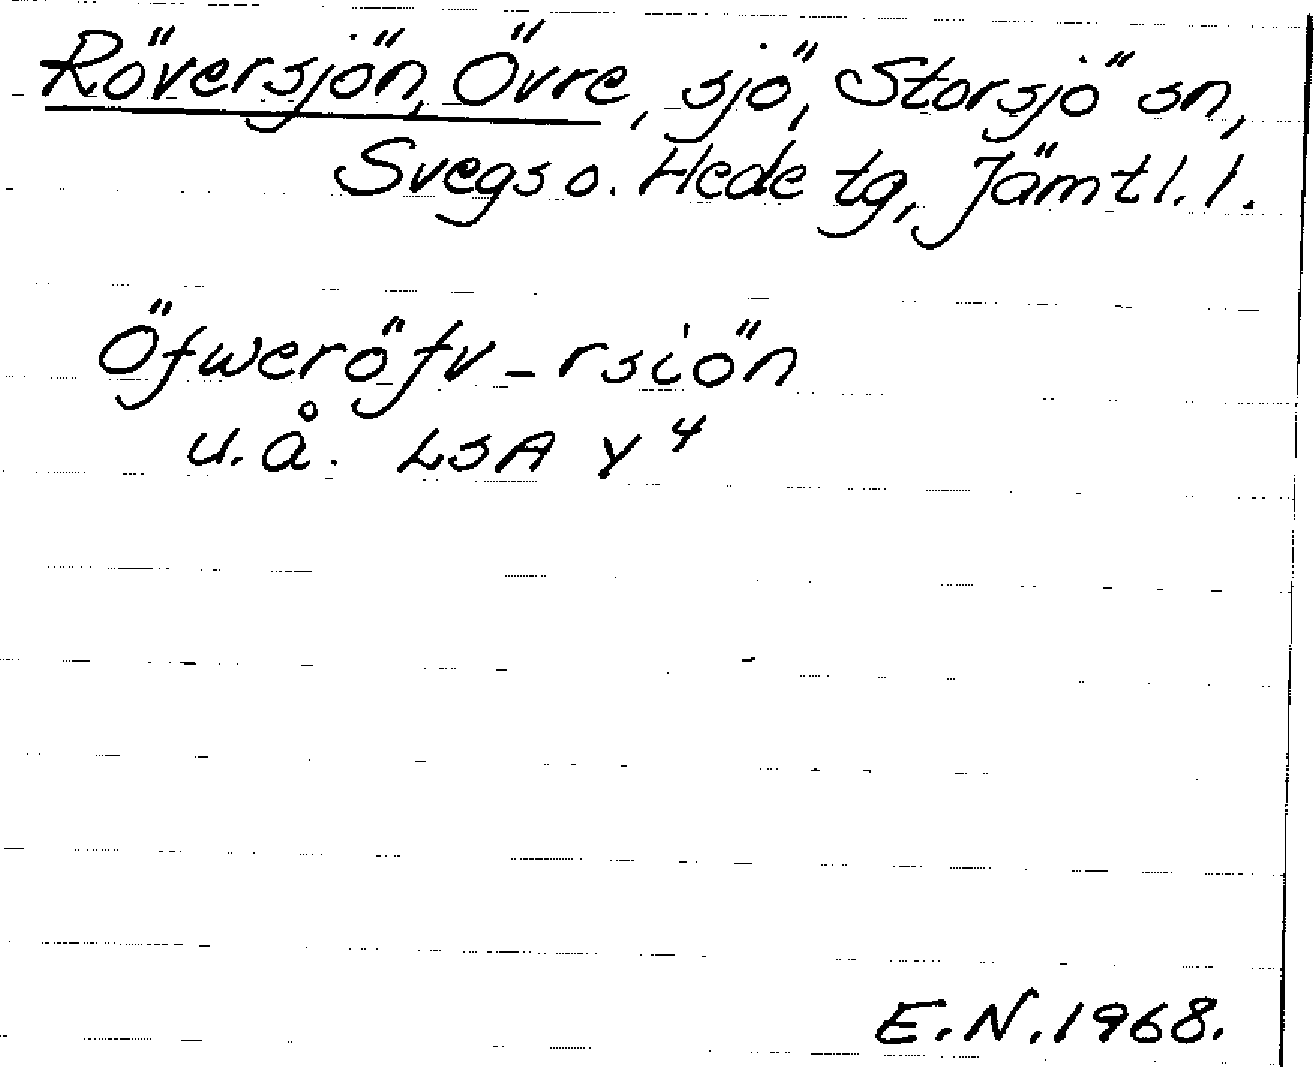 Röversjön, Övre, sjö, Storsjö sn,
Svegs o. Hede tg, Jämtl. l.
Öfweröfv-rsiön
u.å. LSA Y 4
E.N. 1968.